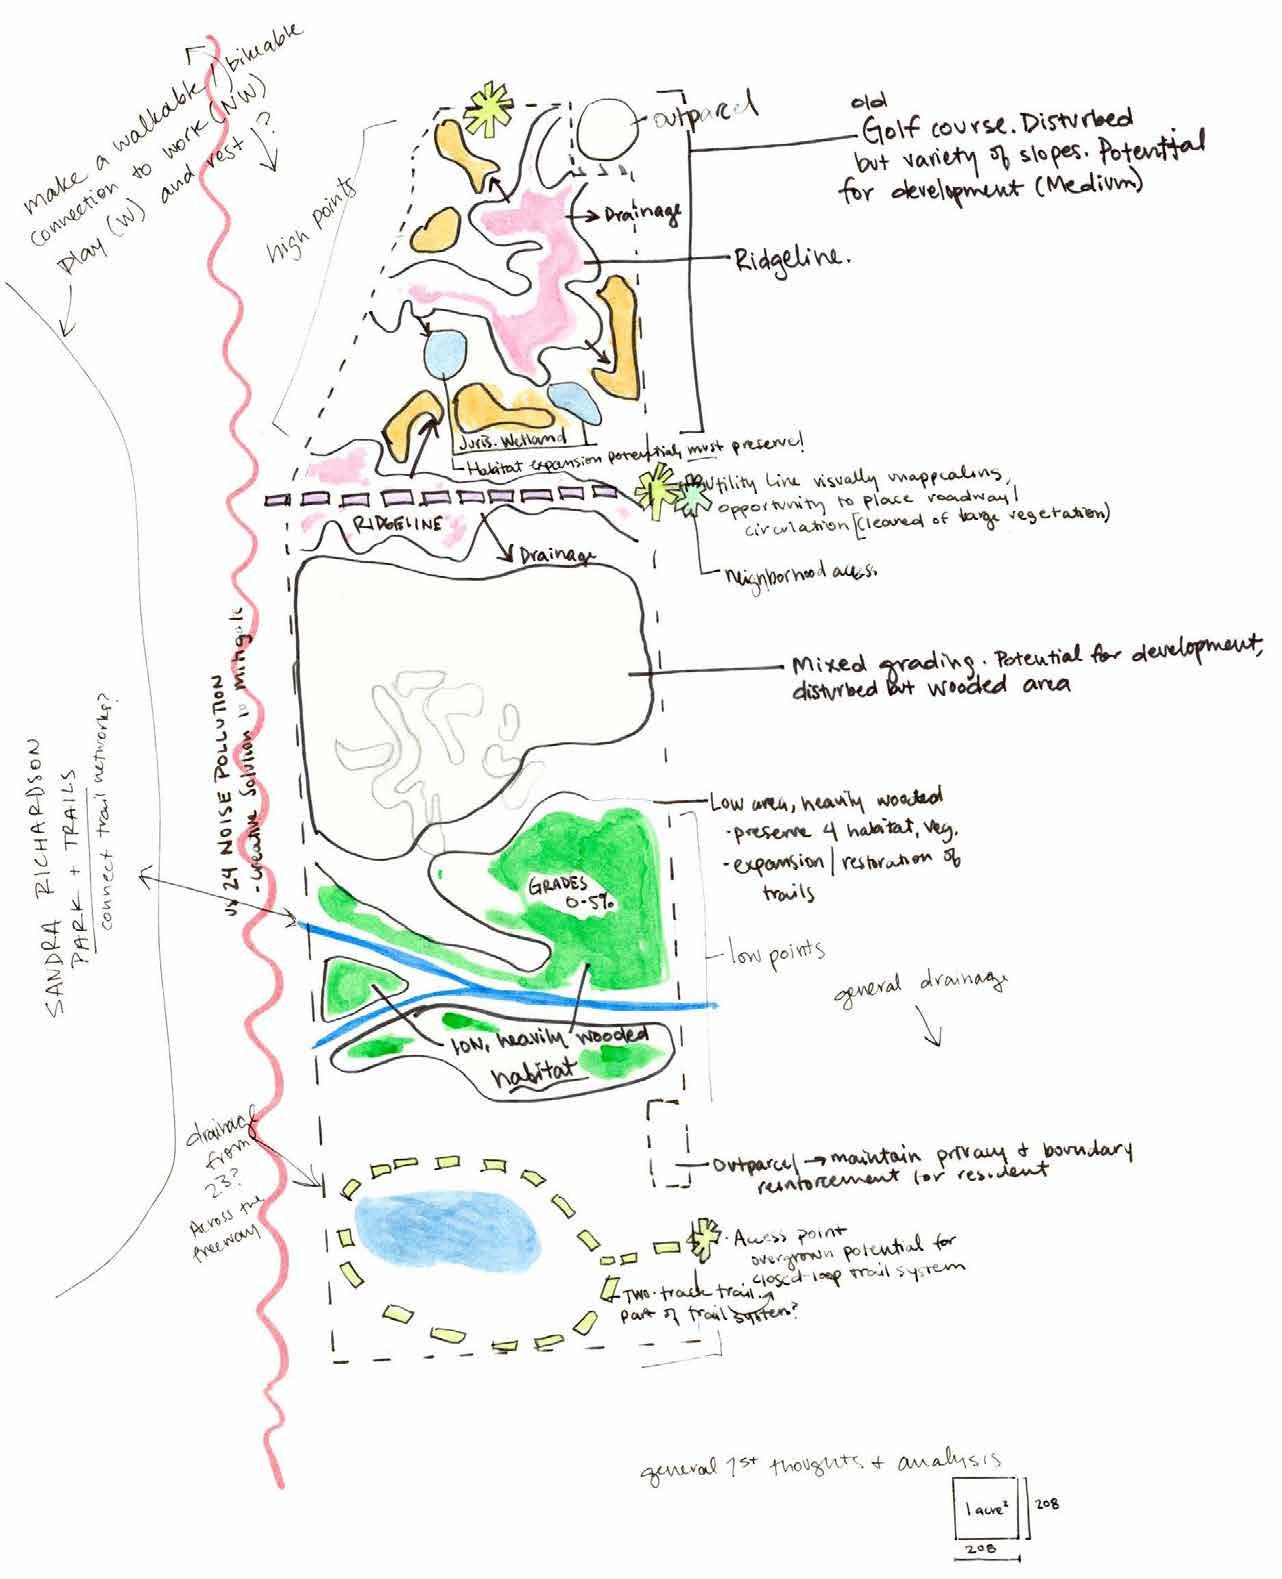 make a walkable / bikeable
connection to work (NW)
play (W) and rest?
high points
outparcel
old
Golf course. Disturbed
but variety of slopes. Potential
for development (Medium)
Drainage
Ridgeline.
Juris. Wetland
Habitat expansion potential, must preserve!
Utility Line visually unappealing,
opportunity to place roadway/
circulation [cleared of large vegetation)
RIDGELINE
Drainage
Neighborhood access.
US 24 NOISE POLLUTION
-creative solution to mitigate
Mixed grading. Potential for development,
disturbed but wooded area
SANDRA RICHARDSON
PARK + TRAILS
connect trail networks?
Low area, heavily wooded
-preserve 4 habitat, veg.
-expansion / restoration of
trails
GRADES
0-5%
low points
general drainage
low, heavily wooded
habitat
drainage
from
23?
Across the
freeway
Outparcel → maintain privacy + boundary
reinforcement for resident
Access point
overgrown potential for
closed-loop trail system
Two-track trail.
part of trail system?
general 1st thoughts + analysis
1 acre²
208
208